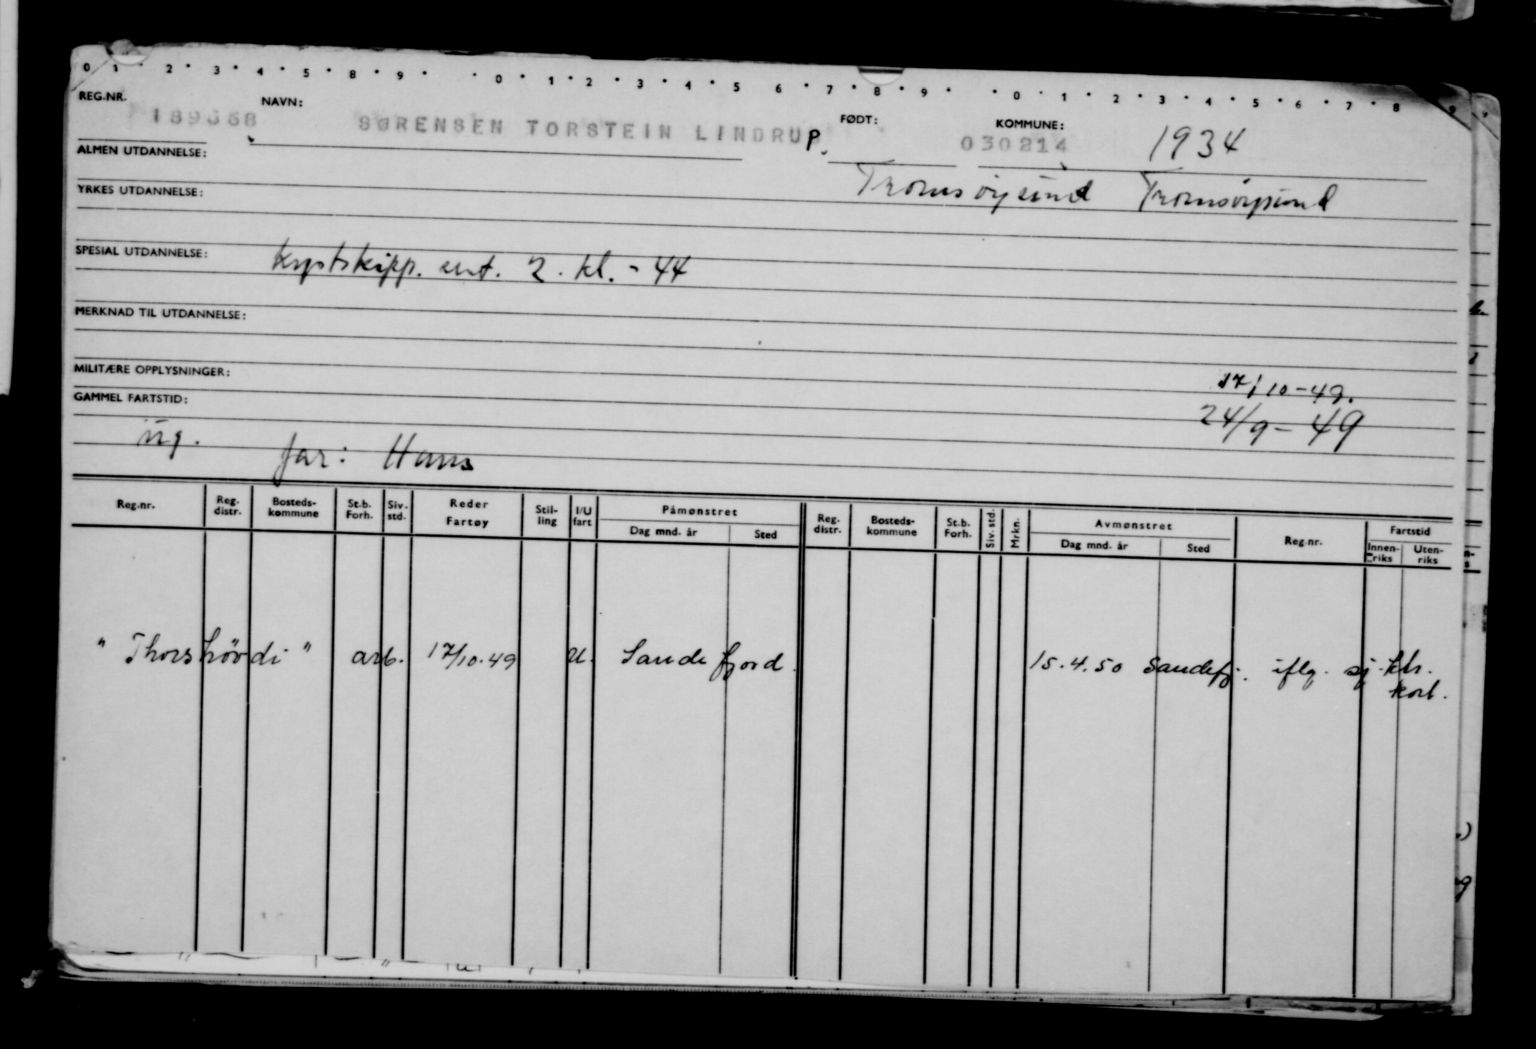 0 1 2 3 4 5 8 9 0 1 2 3 4 5 6 7 8 9 0 1 2 3 4 5 6 7 8 9
REG.NR. NAVN: FØDT: KOMMUNE:
189668 SØRENSEN TORSTEIN LINDRUP. 030214 1934
ALMEN UTDANNELSE:
Tromsøysund Tromsøysund
YRKES UTDANNELSE:
SPESIAL UTDANNELSE: kystskipp. ent. 2. kl. - 44
MERKNAD TIL UTDANNELSE:
MILITÆRE OPPLYSNINGER: 17/10-49.
GAMMEL FARTSTID: 24/9-49
ug. far: Hans
Reg.nr. Reg. distr. Bosteds-kommune St.b. Forh. Siv. std. Reder Fartøy Stil-ling I/U fart Påmønstret Dag mnd. år Sted Reg. distr. Bosteds-kommune St.b. Forh. Siv. std. Mrkn. Avmønstret Dag mnd. år Sted Reg.nr. Fartstid Innen-riks Uten-riks
" Thorshövdi " arb. 17/10.49 U. Sandefjord. 15.4.50 Sandefj. iflg. sj.
kort.